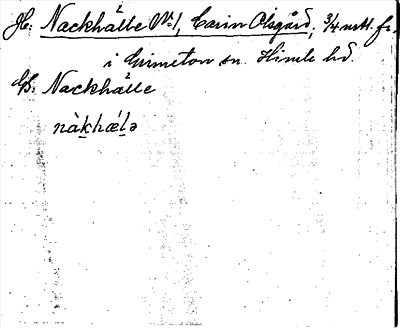 He: Nackhälle Nr 1, Carin Olsgård, 3/4 mtl. fr.
i Grimeton sn. Himle hd.
Up. Nackhälle
nàkhǽlə